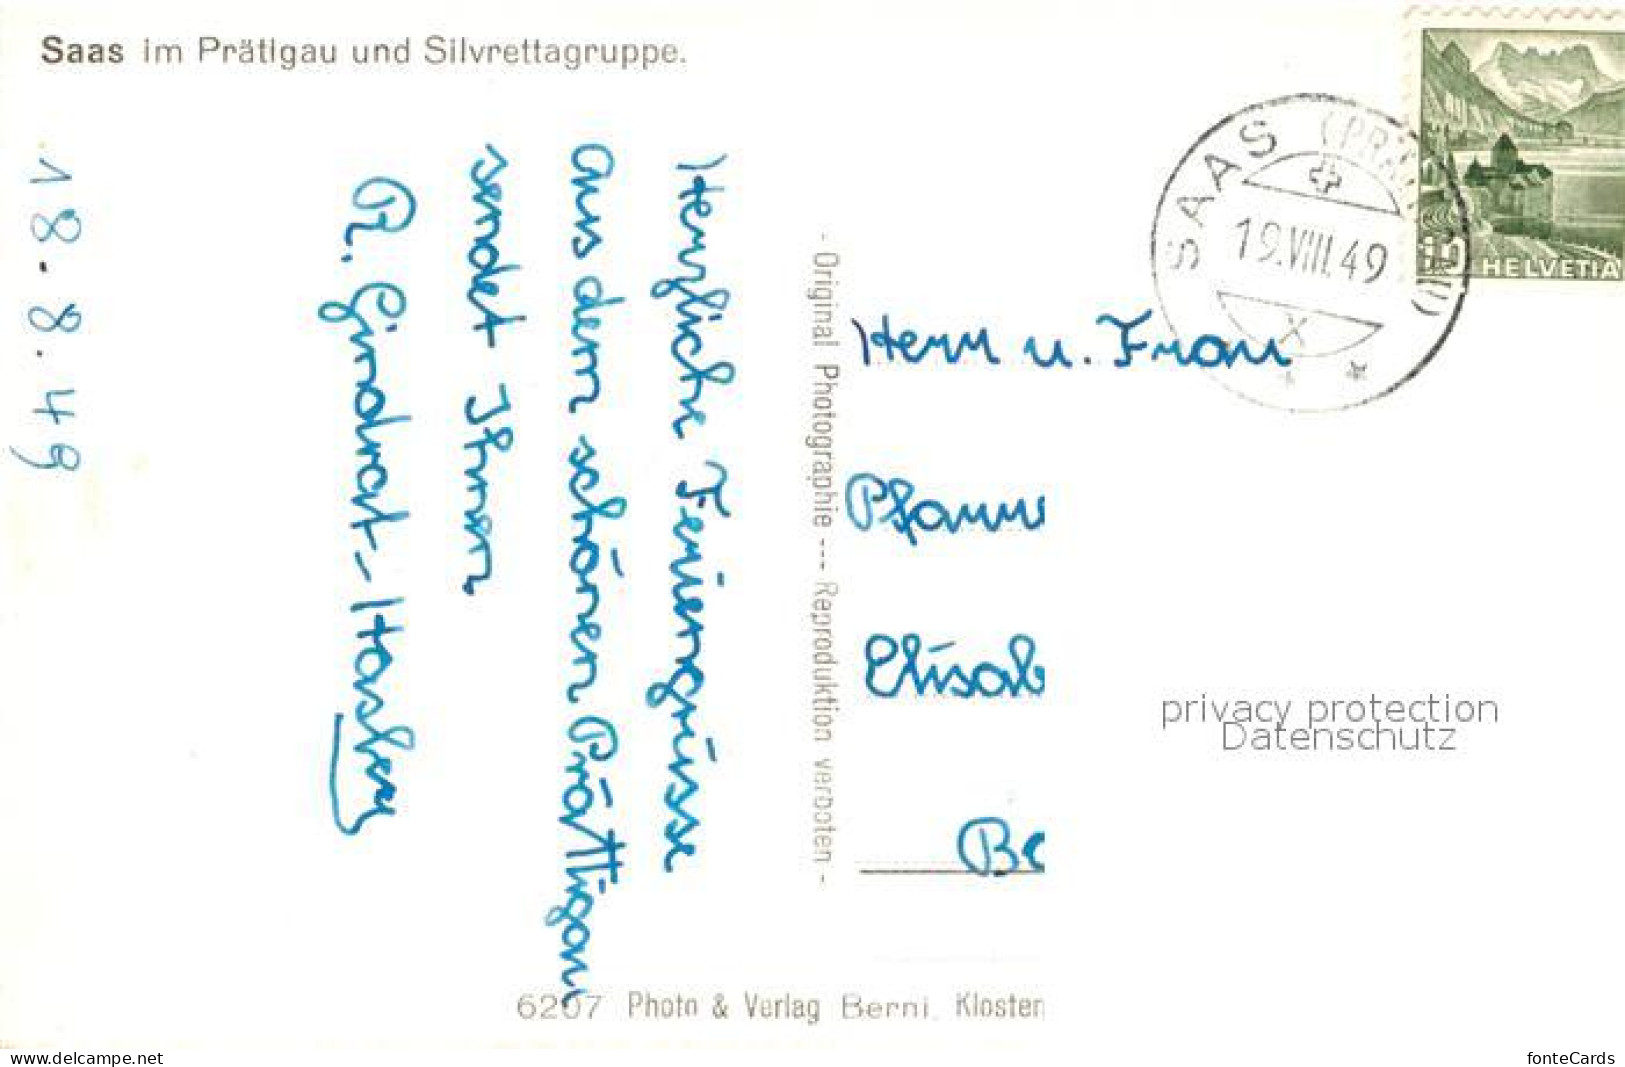 Saas im Prätigau und Silvrettagruppe.
18.8.49
Herzliche Feriengrüsse
aus dem schönen Prättigau
sendet Ihnen
R. Gindrat-Hasler
- Original Photographie --- Reproduktion verboten -
SAAS (PRÄTIGAU)
19.VIII.49
X
HELVETIA
10
Herrn u. Frau
Pfann
Elisab
Be
6207 Photo & Verlag Berni, Kloster
privacy protection
Datenschutz
www.delcampe.net
fonteCards